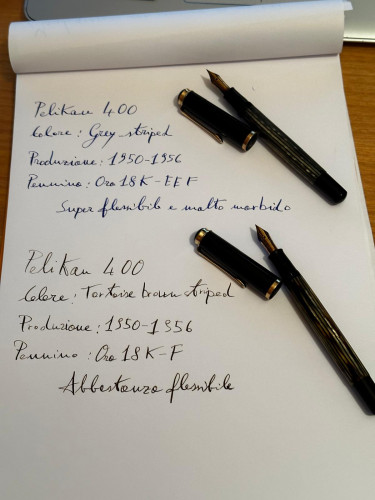 Pelikan 400
Colore: Grey striped
Produzione: 1950-1956
Pennino: Oro 18K-EEF
Super flessibile e molto morbido
Pelikan 400
Colore: Tortoise brown striped
Produzione: 1950-1956
Pennino: Oro 18K-F
Abbastanza flessibile